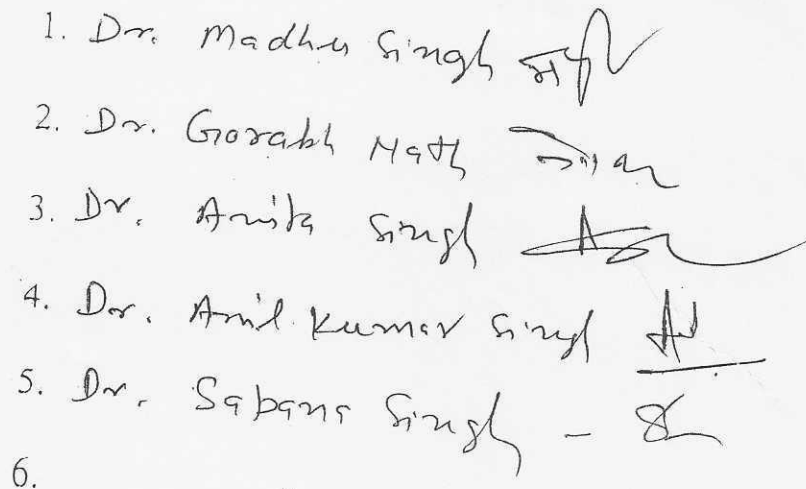 1. Dr. Madhu Singh
2. Dr. Gorakh Nath
3. Dr. Anita Singh
4. Dr. Anil Kumar Singh
5. Dr. Sabana Singh -
6.